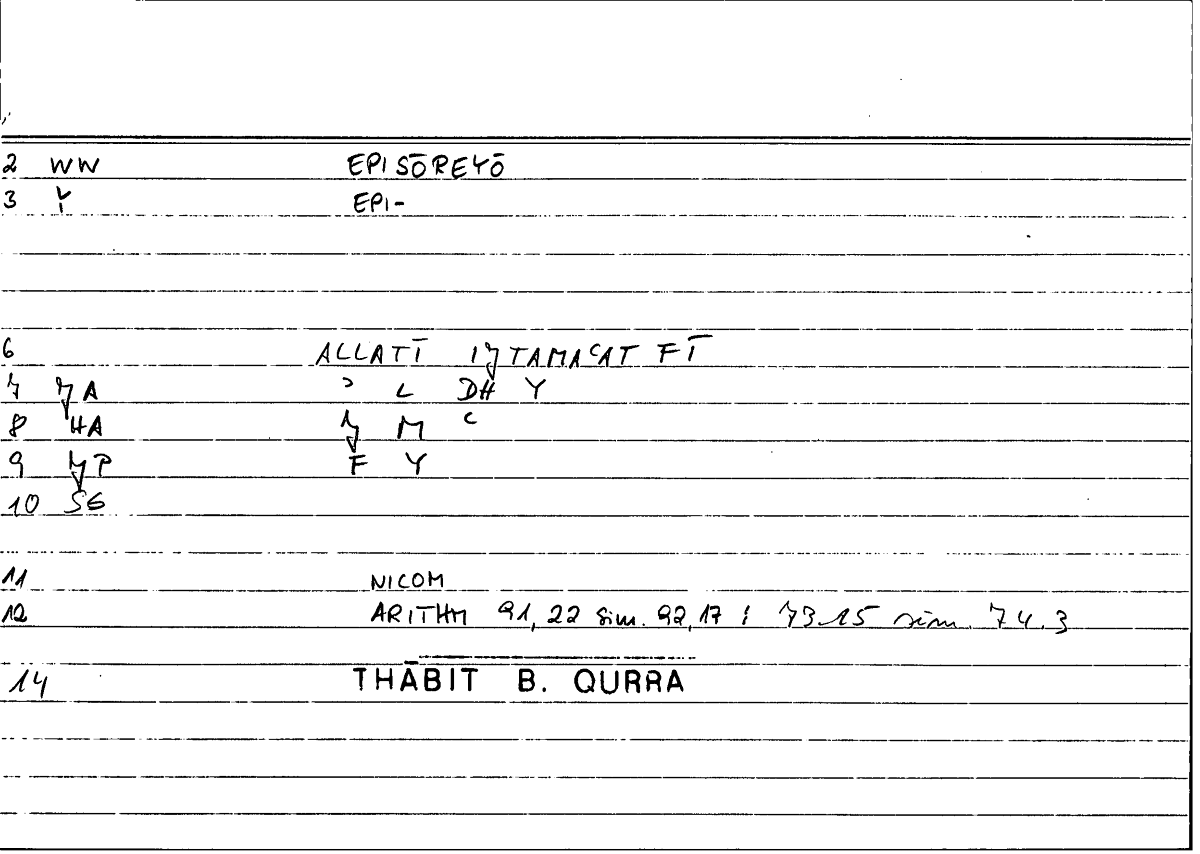 2 WW EPISŌREYŌ
3 Y EPI-
6 ALLATĪ IJTAMAʿAT FĪ
7 JA ʾ L DH Y
8 HA J M ʿ
9 JP F Y
10 SG
11 NICOM
12 ARITHM 91,22 sim. 92,17 : 73.15 sim. 74.3
14 THĀBIT B. QURRA